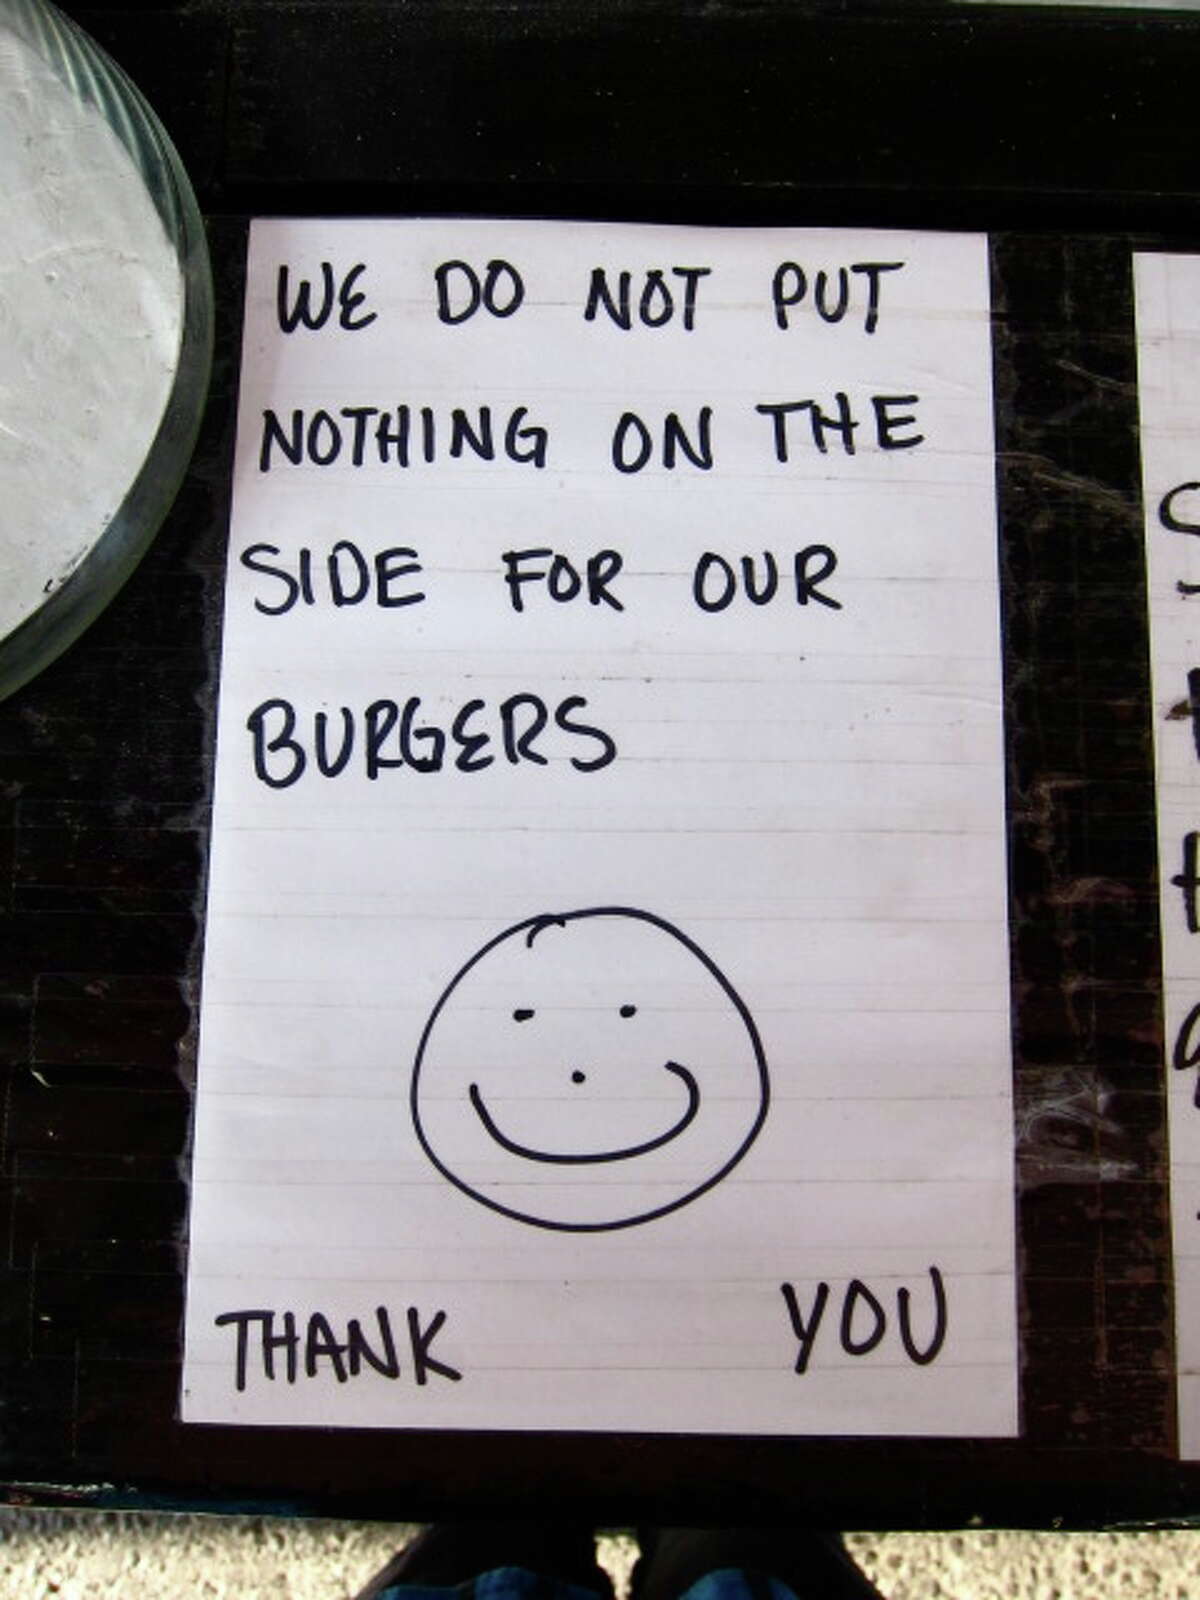 WE DO NOT PUT
NOTHING ON THE
SIDE FOR OUR
BURGERS
THANK YOU